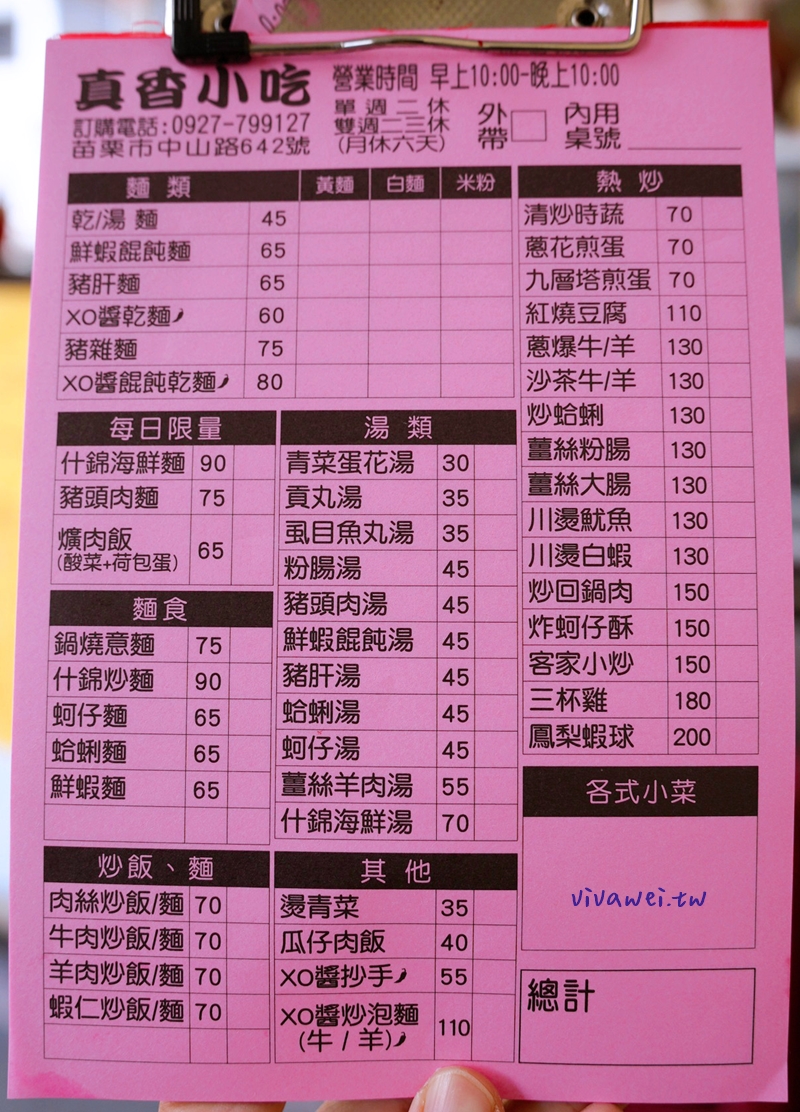 真香小吃
營業時間 早上10:00-晚上10:00
訂購電話:0927-799127
苗栗市中山路642號
單週二休
雙週二三休
(月休六天)
外帶
內用桌號
麵類 黃麵 白麵 米粉
乾/湯 麵 45
鮮蝦餛飩麵 65
豬肝麵 65
XO醬乾麵 60
豬雜麵 75
XO醬餛飩乾麵 80
熱炒
清炒時蔬 70
蔥花煎蛋 70
九層塔煎蛋 70
紅燒豆腐 110
蔥爆牛/羊 130
沙茶牛/羊 130
炒蛤蜊 130
薑絲粉腸 130
薑絲大腸 130
川燙魷魚 130
川燙白蝦 130
炒回鍋肉 150
炸蚵仔酥 150
客家小炒 150
三杯雞 180
鳳梨蝦球 200
每日限量
什錦海鮮麵 90
豬頭肉麵 75
爌肉飯 65
(酸菜+荷包蛋)
麵食
鍋燒意麵 75
什錦炒麵 90
蚵仔麵 65
蛤蜊麵 65
鮮蝦麵 65
湯類
青菜蛋花湯 30
貢丸湯 35
虱目魚丸湯 35
粉腸湯 45
豬頭肉湯 45
鮮蝦餛飩湯 45
豬肝湯 45
蛤蜊湯 45
蚵仔湯 45
薑絲羊肉湯 55
什錦海鮮湯 70
炒飯、麵
肉絲炒飯/麵 70
牛肉炒飯/麵 70
羊肉炒飯/麵 70
蝦仁炒飯/麵 70
其他
燙青菜 35
瓜仔肉飯 40
XO醬抄手 55
XO醬炒泡麵 110
(牛/羊)
各式小菜
vivawei.tw
總計